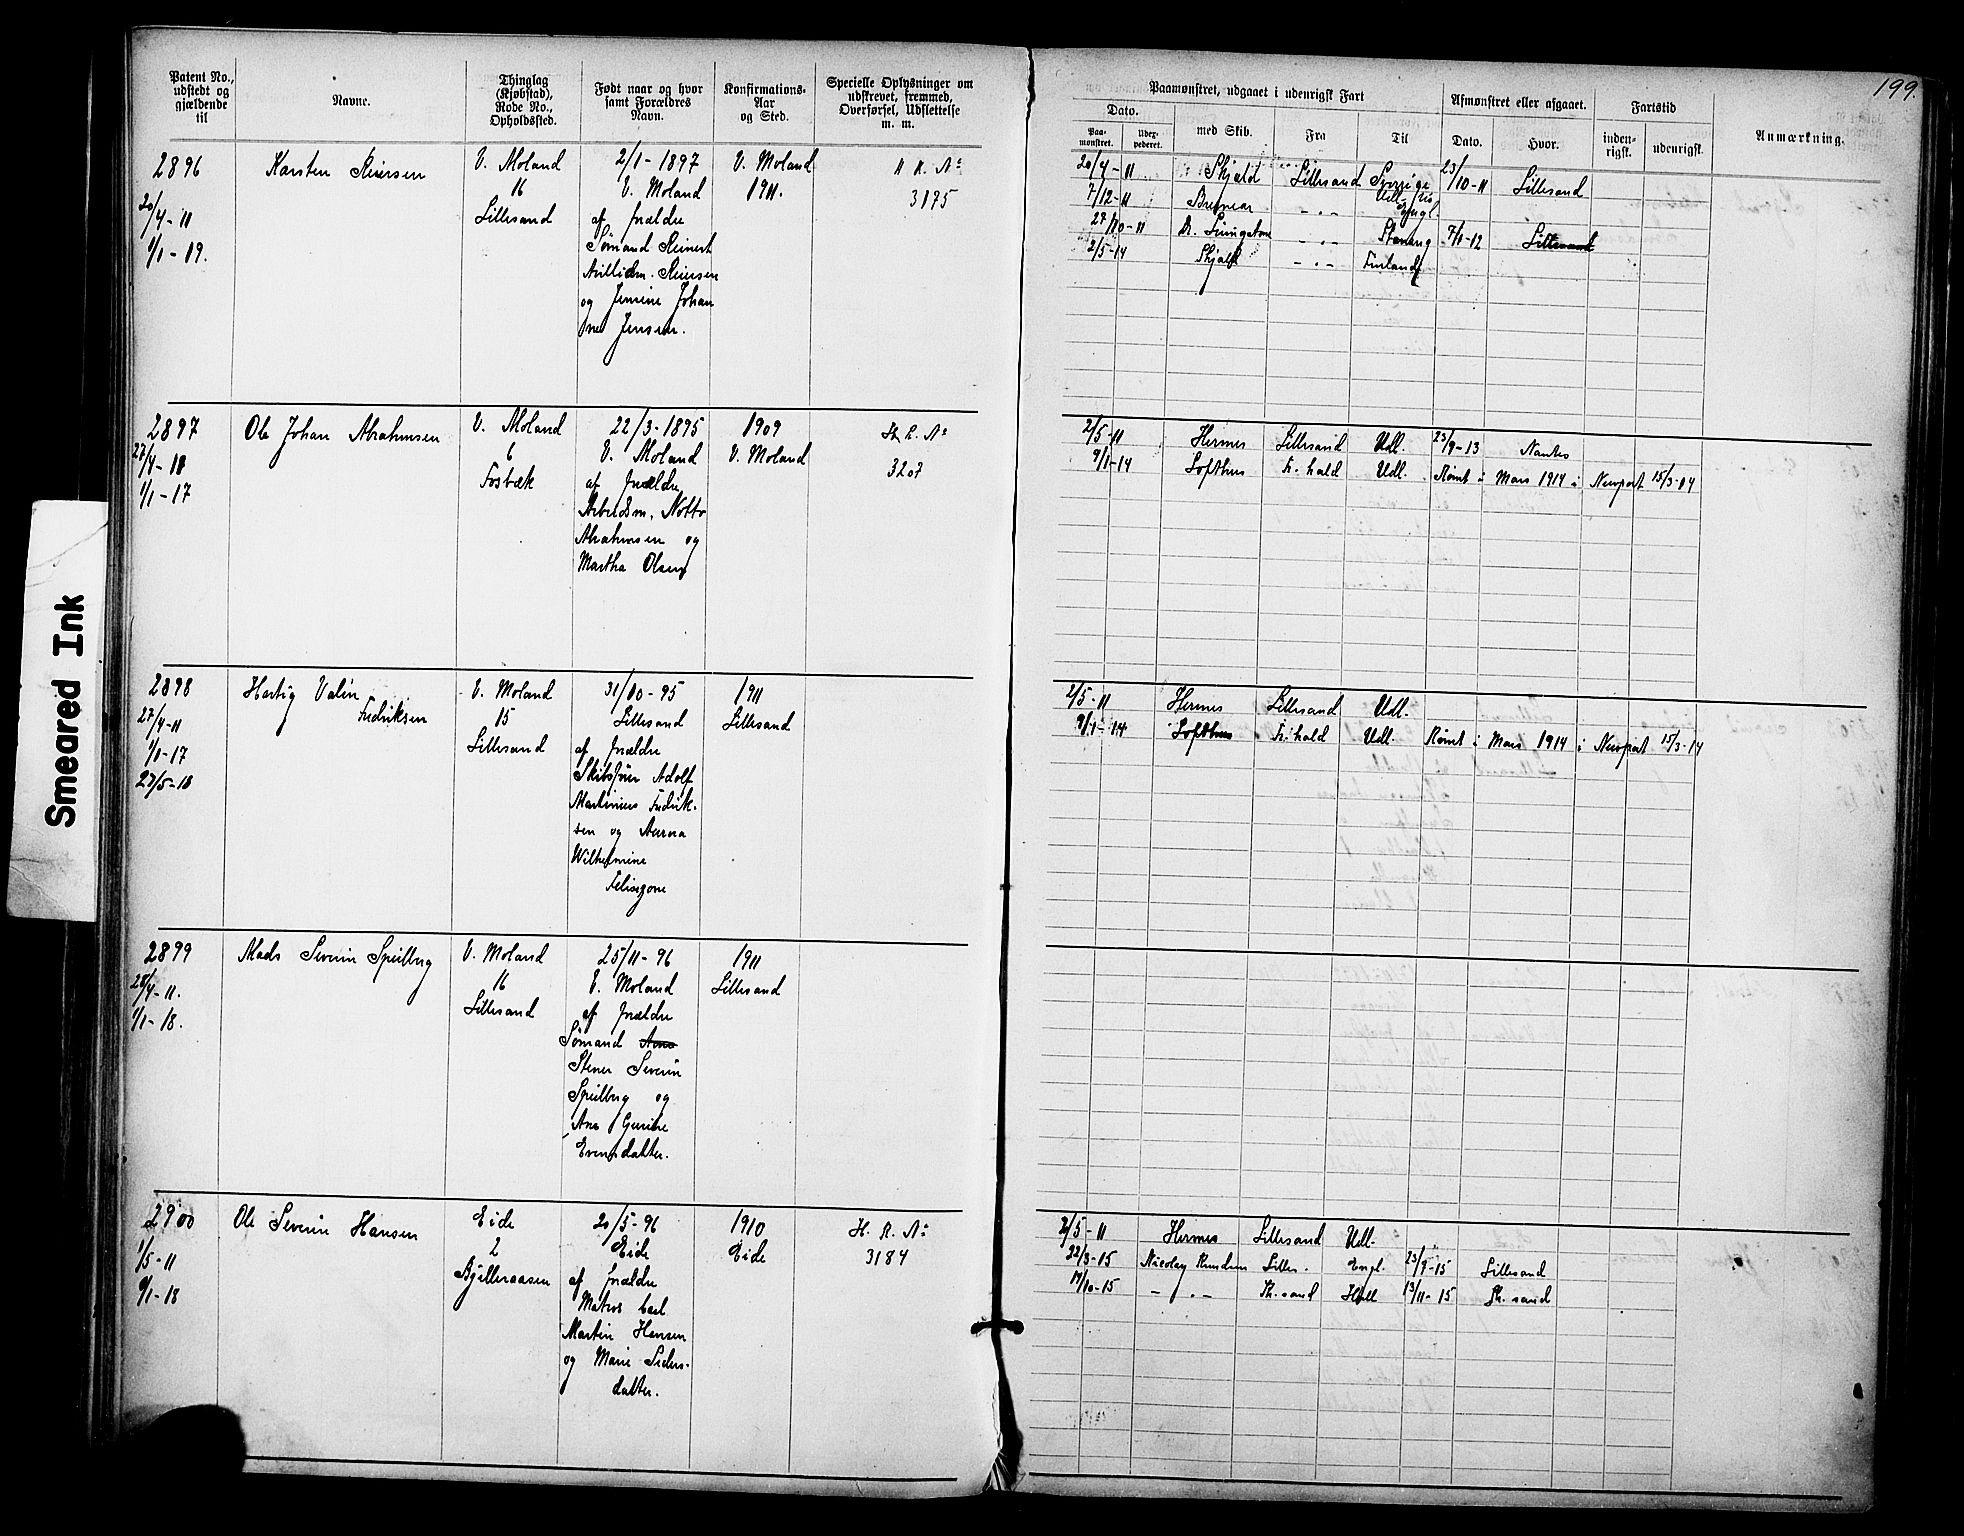 199.
Smeared Ink
Patent No., udstedt og gjældende til
Navne.
Thinglag (Kjøbstad), Rode No., Opholdssted.
Født naar og hvor samt Forældres Navn.
Konfirmations-Aar og Sted.
Specielle Oplysninger om udskrevet, fremmed, Overførsel, Udslettelse m. m.
Paamønstret, udgaaet i udenrigsk Fart
Dato.
Paa-mønstret.
Uder-pederet.
med Skib.
Fra
Til
Afmønstret eller afgaaet.
Dato.
Hvor.
Fartstid
inden-rigsk.
udenrigsk.
Anmærkning.
2896
20/4-11
1/1-19.
Karsten Reiersen
V. Moland
16
Lillesand
2/1-1897
V. Moland
af forældre
Sømand Reinert
Reiersen
og Jensine Johan
ne Jensen.
V. Moland
1911.
3175
20/4-11 Skjold Lillesand Sverige 23/10-11 Lillesand
7/12-11 - . -
Engl.
27/10-11 - . - 7/1-12 Lillesand
2/5-14 Skjold - . - Finland
2897
27/4-11
1/1-17
Ole Johan Abrahamsen
V. Moland
6
Fosbæk
22/3-1895
V. Moland
af forældre
Arbeidsm. Notto
Abrahamsen og
Martha Olsen
1909
V. Moland
3207
2/5-11 Hermes Lillesand Udl. 23/9-13 Nantes
9/1-14 Lofthus Fr. hald Udl. Rømt i Mars 1914 i Newport 15/3-14
2898
27/4-11
1/1-17
27/5-18
Hartvig Valin
Fredriksen
V. Moland
15
Lillesand
31/10-95
Lillesand
af forældre
Skibsfører Adolf
Martinius Fredrik-
sen og Aurora
Wilhelmine
1911
Lillesand
2/5-11 Hermes Lillesand Udl.
9/1-14 Lofthus Fr. hald Udl. Rømt i Mars 1914 i Newport 15/3-14
2899
28/4-11.
1/1-18.
Mads Severin Speilberg
V. Moland
16
Lillesand
25/11-96
V. Moland
af forældre
Sømand
Stener Severin
Speilberg og
Ane Gurine
Evensdatter.
1911
Lillesand
2900
1/5-11
1/1-18
Ole Severin Hansen
Eide
2
20/5-96
Eide
af forældre
Matros Carl
Martin Hansen
og Marie Peders-
datter.
1910
Eide
H. R. No
3184
2/5-11 Hermes Lillesand Udl.
22/3-15 Nicolay Knudsen Lilles. Engl. 23/9-15 Lillesand
17/10-15 - . - Kr. sand Hull 13/11-15 Kr. sand